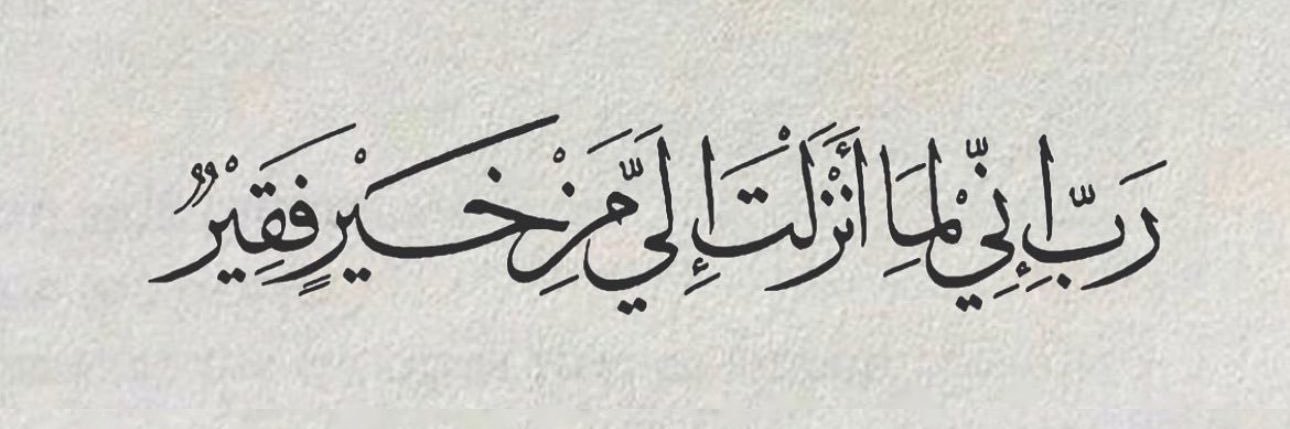 رَبِّ إِنِّيْ لِمَا أَنْزَلْتَ إِلَيَّ مِنْ خَيْرٍ فَقِيْرٌ